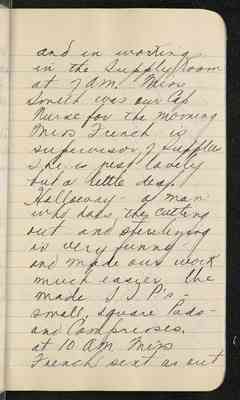 and in working
in the Supply room
at 7 A.M. Miss
Smith was our Cap
Nurse for the morning
Miss French is
supervisor of Supplies
She is just lovely
but a little deaf.
Halloway - a man
who does the cutting
out and sterilizing
is very funny -
and made our work
much easier. We
made J.J.P's -
small, square Pads -
and Compresses.
at 10 A.M. Miss
French sent us out